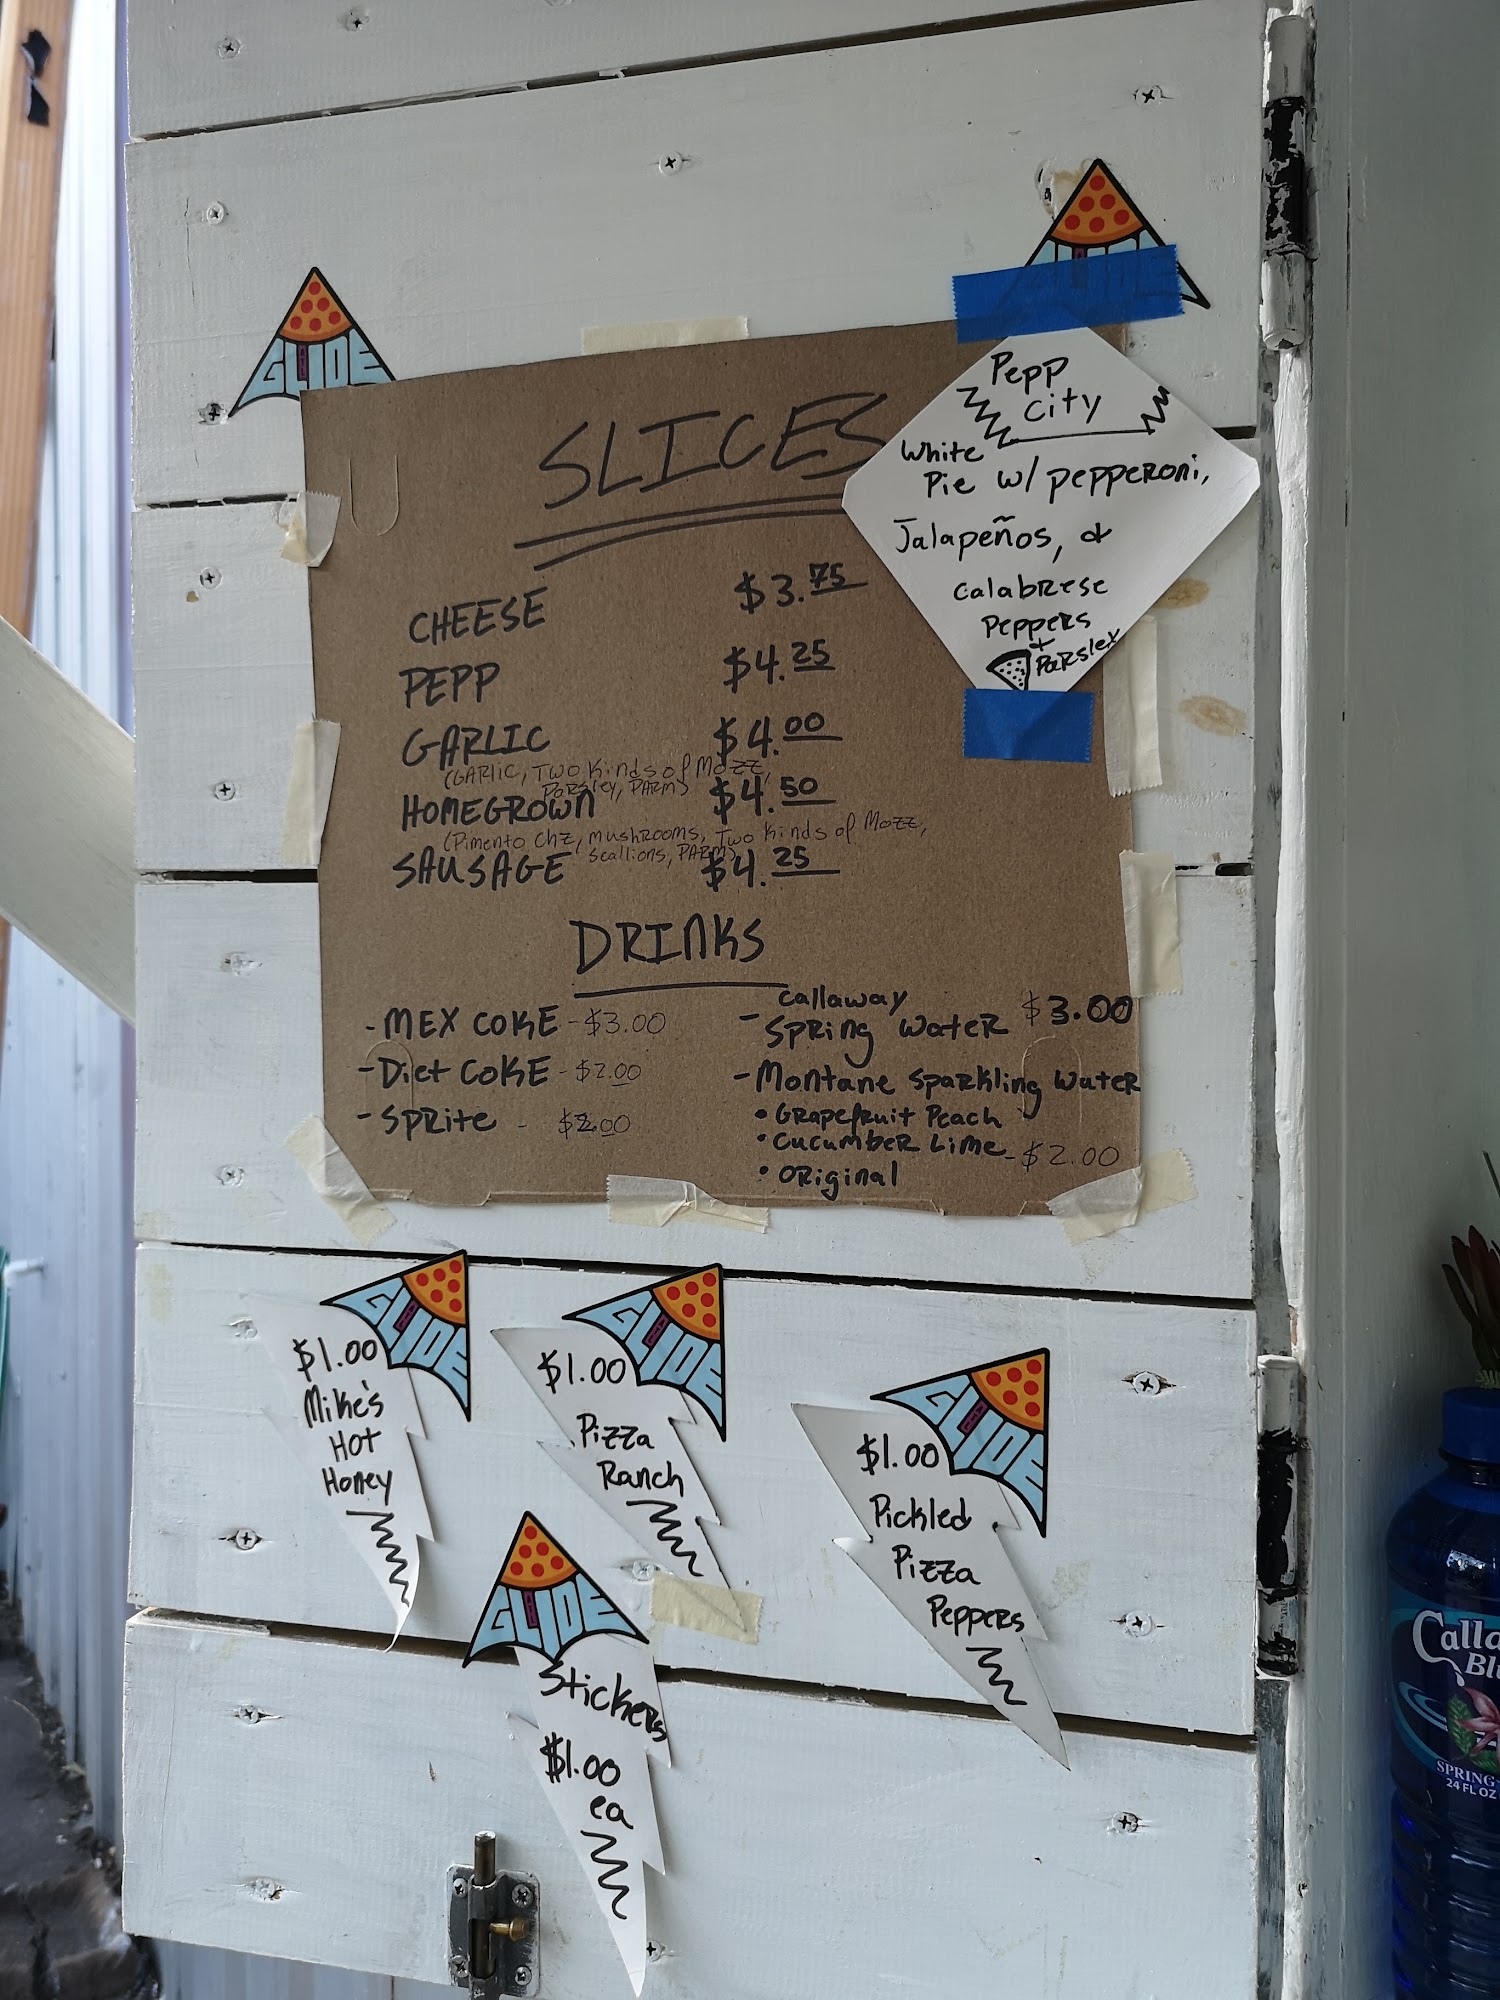 GLIDE
GLIDE
SLICES
CHEESE $3.75
PEPP $4.25
GARLIC $4.00
(GARLIC, TWO Kinds of MOZZ,
PARSley, PARM)
HOMEGROWN $4.50
(Pimento CHZ, mushrooms, Two Kinds of Mozz,
Scallions, PARM)
SAUSAGE $4.25
Pepp
City
White
Pie w/ pepperoni,
Jalapeños, &
Calabrese
Peppers
+
Parsley
DRINKS
- MEX COKE - $3.00
- Diet COKE - $2.00
- Sprite - $2.00
Callaway
- Spring Water $3.00
- Montane Sparkling Water
• Grapefruit Peach
• Cucumber Lime - $2.00
• Original
ATL
GLIDE
$1.00
Mike's
Hot
Honey
ATL
GLIDE
$1.00
Pizza
Ranch
ATL
GLIDE
$1.00
Pickled
Pizza
Peppers
ATL
GLIDE
Stickers
$1.00
ea
Calla
Blu
SPRING
24 FL OZ